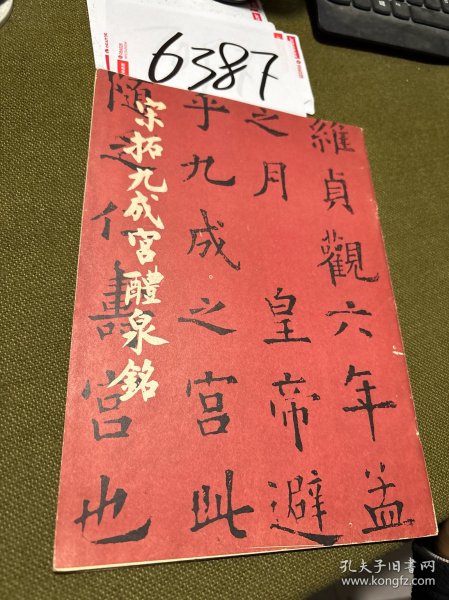 6387
宋拓九成宮醴泉銘
維貞觀六年孟
之月 皇帝避
乎九成之宮此
隨之仁壽宮也
孔夫子旧书网
www.kongfz.com